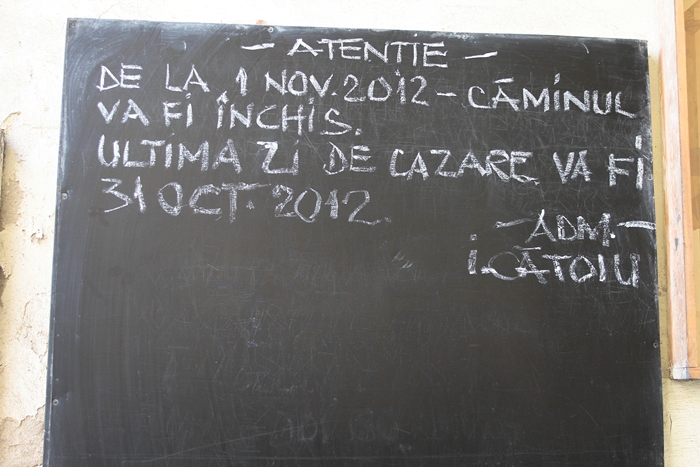 — ATENTIE —
DE LA 1 NOV. 2012 – CĂMINUL
VA FI ÎNCHIS.
ULTIMA ZI DE CAZARE VA FI
31 OCT. 2012.
— ADM. —
I. CĂTOIU